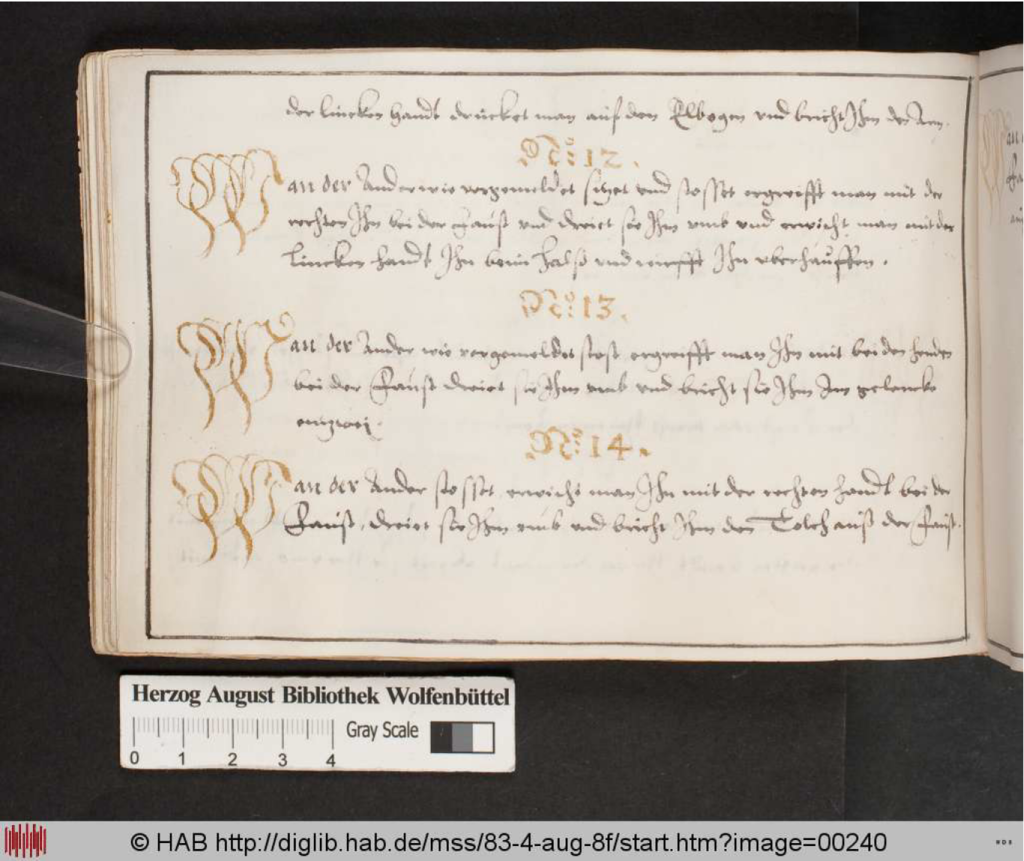 der lincken handt drucket man auf den Elbogen vnd bricht Ihm den Arm.
No: 12.
Wan der Ander wie vorgemeldet sitzet vnd stosset ergreifft man mit der
rechten Ihn bei der Faust vnd dreiet sie Ihm vmb vnd erwischt man mit der
lincken handt Ihn beim halß vnd wirfft Ihn vberhauffen.
No: 13.
Wan der Ander wie vorgemeldet stost ergreifft man Ihn mit beiden henden
bei der Faust dreiet sie Ihm vmb vnd bricht sie Ihm Im gelencke
entzwei.
No: 14.
Wan der Ander stosset erwischt man Ihn mit der rechten handt bei der
Faust, dreiet sie Ihm vmb vnd bricht Ihm den Tolch auß der Faust.
Herzog August Bibliothek Wolfenbüttel
0 1 2 3 4 Gray Scale
© HAB http://diglib.hab.de/mss/83-4-aug-8f/start.htm?image=00240